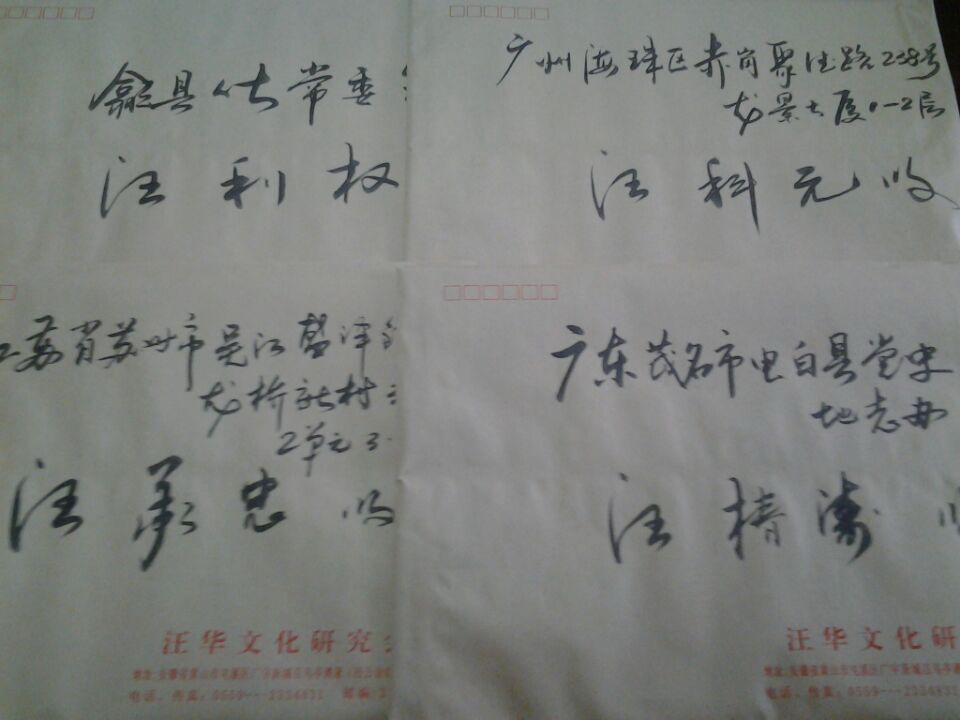 歙县人大常委
汪利权
广州海珠区赤岗聚德路258号
龙景大厦1-2层
汪科元收
江苏省苏州市吴江盛泽
龙桥新村
2单元3
汪承忠收
广东茂名市电白县党史
地志办
汪椿涛
汪华文化研究
电话、传真：0559---2334831 邮编
汪华文化研
电话、传真：0559---2334831